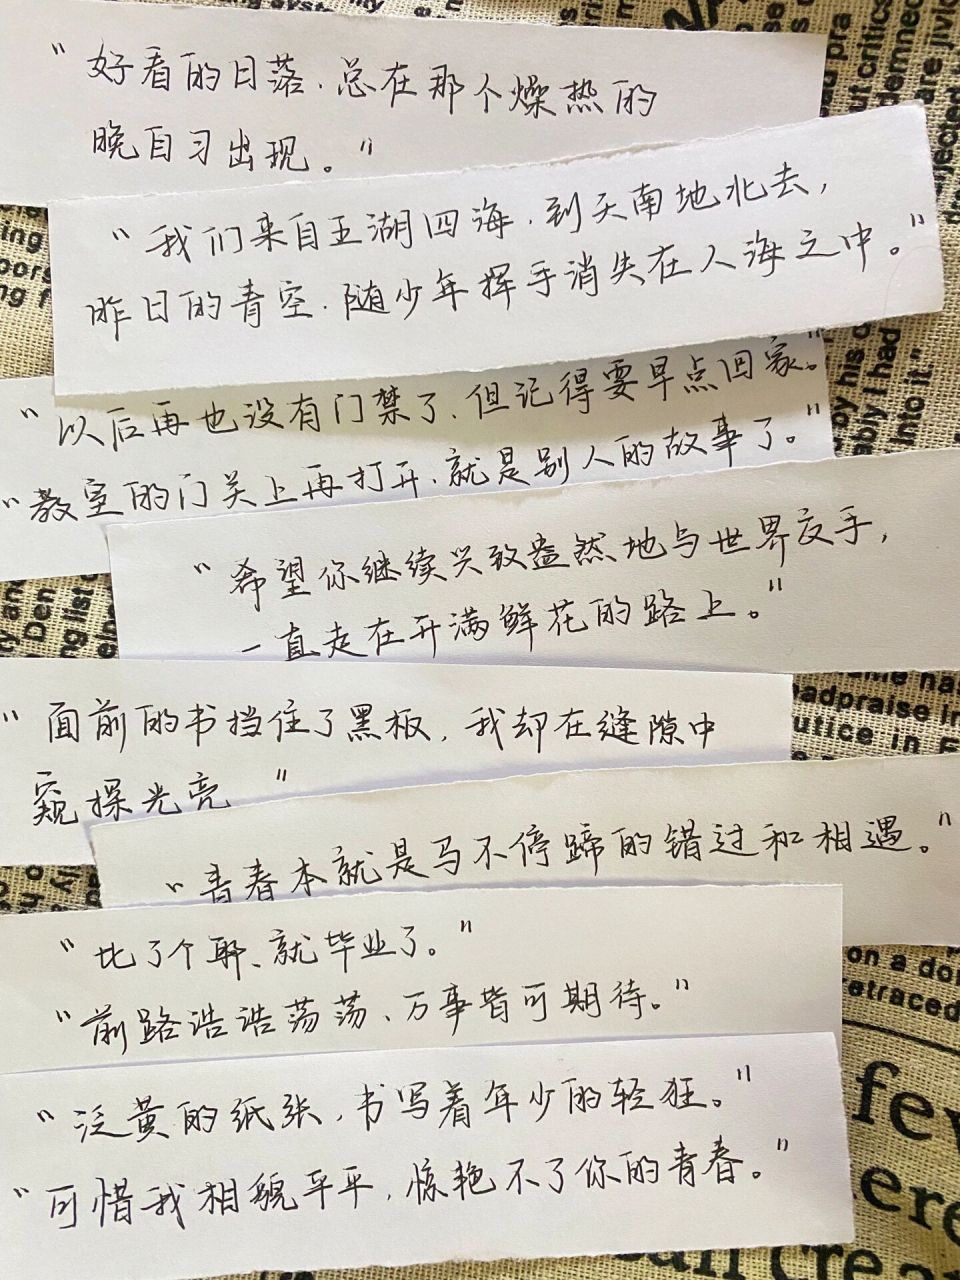 "好看的日落.总在那个燥热的
晚自习出现。"
"我们来自五湖四海.到天南地北去,
昨日的青空.随少年挥手消失在人海之中。"
"以后再也没有门禁了.但记得要早点回家。"
"教室的门关上再打开.就是别人的故事了。"
"希望你继续兴致盎然地与世界交手,
一直走在开满鲜花的路上。"
"面前的书挡住了黑板,我却在缝隙中
窥探光亮"
"青春本就是马不停蹄的错过和相遇。"
"比了个耶、就毕业了。"
"前路浩浩荡荡、万事皆可期待。"
"泛黄的纸张,书写着年少的轻狂。"
"可惜我相貌平平,惊艳不了你的青春。"
few
ere
an crea
into it."
ably I had
by his
on a do
retraced
adpraise in
utice in